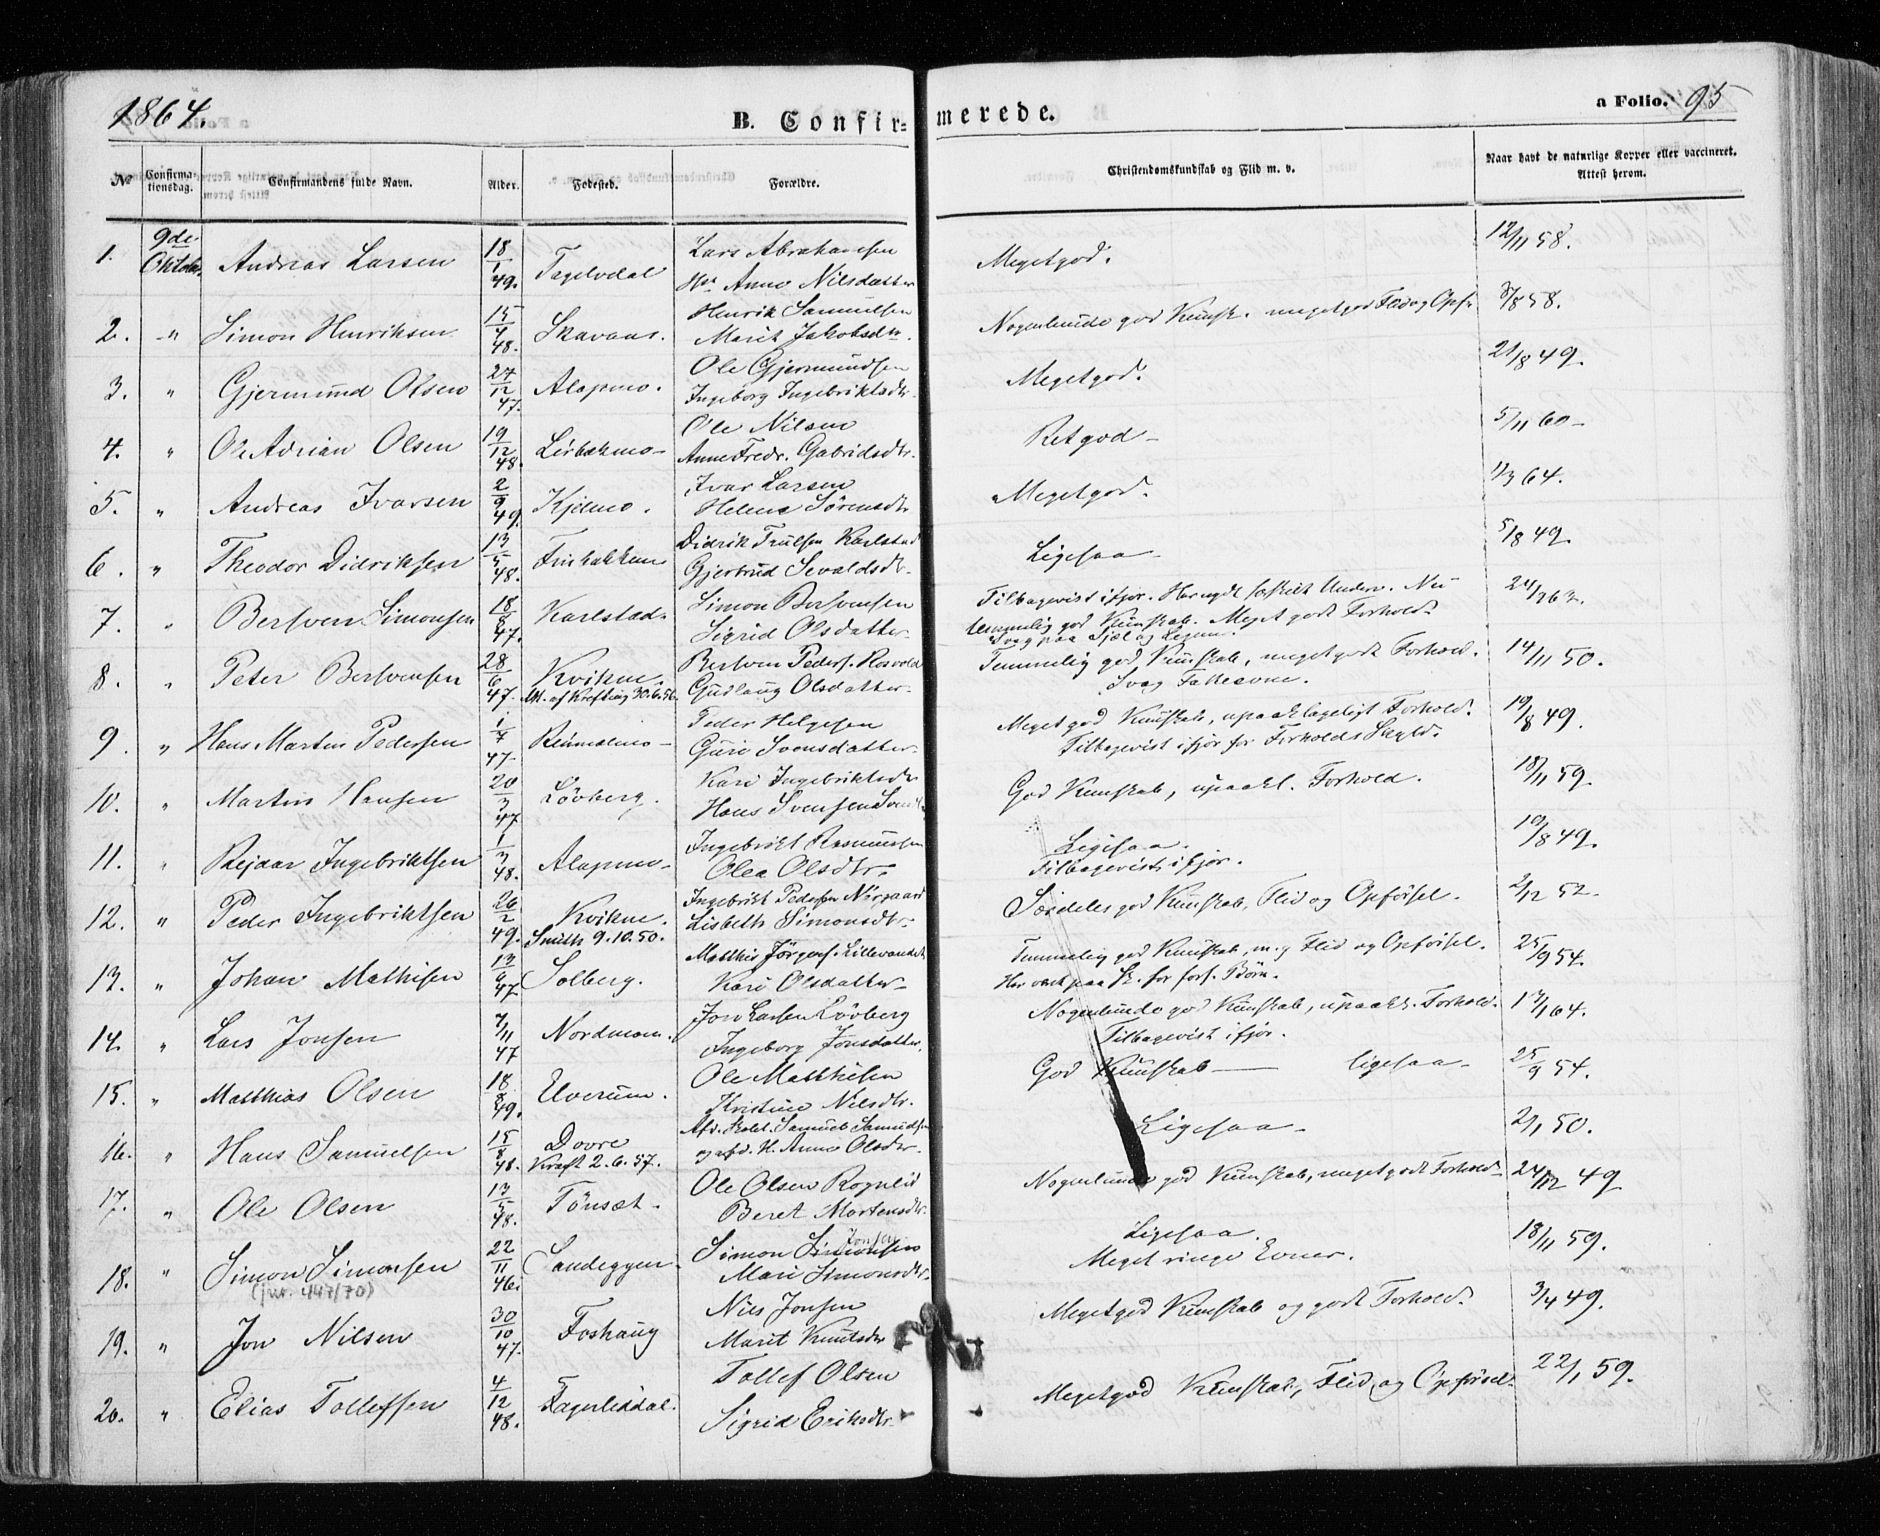 1864.
B. Confir-
merede.
a Folio. 95
No
Confirma-
tionsdag.
Confirmandens fulde Navn.
Alder.
Fodested.
Forældre.
Christendomskundskab og Flid m. v.
Naar havt de naturlige Kopper eller vaccineret.
Attest herom.
1. 9de Oktober. Andreas Larsen 18/1 49. Tagelvdal Lars Abrahamsen
Anne Nilsdatter
Megetgod. 12/11 58.
2. " Simon Henriksen 15/4 48. Skavaas. Henrik Samuelsen
Marit Jakobsdtr.
Nogenlunde god Kunsk. megetgod Flid og Opf. 3/8 58.
3. " Gjermund Olsen 27/12 47. Alapmo. Ole Gjermundsen
Ingeborg Ingebriktsdtr.
Megetgod. 21/8 49.
4. " Ole Adrian Olsen 19/12 48. Ole Nilsen
Anne Fredr. Gabrielsdtr.
Retgod 5/11 60
5. " Andreas Ivarsen 2/9 49. Kjelmo. Ivar Larsen
Helena Sörensdtr
Megetgod. 1/3 64.
6. " Theodor Didriksen 13/5 48. Finbakken Didrik Trulsen Karlstad
Gjertrud Sevaldsdtr.
Ligesaa 5/8 49.
7. " Bersven Simonsen 18/8 47. Karlstad Simon Bersvensen
Sigrid Olsdatter
Tilbagevist ifjor. Har nydt særskilt Underv. Nu
temmelig god Kunskab. Meget godt Forhold.
Svag paa Sjæl og Legem.
8. " Peter Bersvensen 28/6 47. Kvikne. Bersven Peders. Rosvold
Att. af Krefting 30.6.56. Gudlaug Olsdatter
Temmelig god Kunskab, megetgodt Forhold. 14/11 50.
Svag Fatteevne.
9. " Hans Martin Pedersen 1/7 47. Peder Helgesen
Guri Svensdatter
Meget god Kunskab, upaaklageligt Forhold. 19/8 49.
Tilbagevist ifjor for Forholds Skyld.
10. " Martin Hansen 20/3 47 Lövberg. Kari Ingebriktsdtr
Hans Svensen
God Kunskab, upaakl. Forhold. 18/11 59.
11. " Rejdar Ingebriktsen 1/3 48. Alapmo Ingebrikt Rasmussen
Olea Olsdtr.
Ligesaa. 19/8 49.
Tilbagevist ifjor.
12. " Peder Ingebriktsen 26/2 49. Kvikne. Ingebrikt Pedersen Nörgaard
Smith 9.10.50. Lisbeth Simonsdtr.
Særdeles god Kunskab, Flid og Opförsel. 2/12 52.
13. " Johan Mathisen 13/9 47 Solberg. Matthis Jörgens. Lillevandet
Kari Olsdatter
Temmelig god Kunskab, m.g Flid og Opförsel. 25/9 54.
Har været paa Sk. for fors. Börn.
14. " Lars Jonsen 7/11 47 Nordmoen. Jon Larsen Lövberg
Ingeborg Jonsdatter.
Nogenlunde god Kunskab, upaakl. Forhold. 13/1 64.
Tilbagevist ifjor.
15. " Matthias Olsen 18/8 49. Elverum. Ole Matthisen
Kristine Nilsdtr.
God Kunskab — ligesaa 25/9 54.
16. " Hans Samuelsen 15/8 48. Dovre Afd. Samuel Samuelsen
Kraft 2.6.57. og afd. H. Anne Olsdtr.
Ligesaa 2/1 50.
17. " Ole Olsen 13/5 48. Tönsæt Ole Olsen Rognlid
Beret Mortensdtr.
Nogenlunde god Kunskab, megetgodt Forhold 24/12 49
18. " Simon Simonsen 22/11 46. Sandeggen. Simon Simonsen Jonsen
(jnr. 447/70) Mari Simonsdtr.
Ligesaa. 18/11 59.
Meget ringe Evner.
19. " Jon Nilsen 30/10 47. Foshaug Nils Jonsen
Marit Knutsdtr
Megetgod Kunskab og godt Forhold. 3/4 49.
20. " Elias Tollefsen 4/12 48. Fagerliddal. Tollef Olsen
Sigrid Eriksdtr.
Megetgod Kunskab, Flid og Opförsel. 22/1 59.